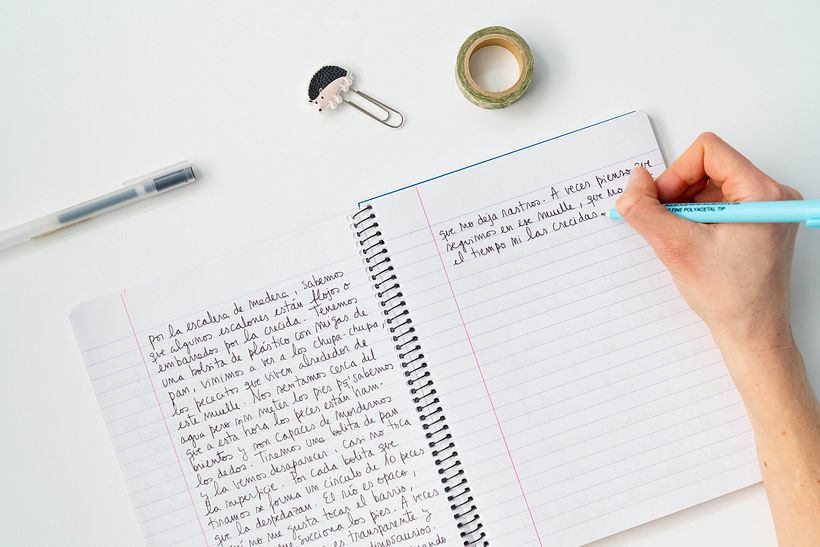 por la escalera de madera, sabemos
que algunos escalones están flojos o
embarrados por la crecida. Tenemos
una bolsita de plástico con migas de
pan, vinimos a ver a los chupa-chupa,
los pececitos que viven alrededor de
este muelle. Nos sentamos cerca del
agua pero sin meter los pies pq' sabemos
que a esta hora los peces están ham-
brientos y son capaces de mordernos
los dedos. Tiremos una bolita de pan
y la vemos desaparecer, casi no toca
la superficie. Por cada bolita que
tiramos se forma un círculo de 10 peces
que la despedazan. El río es opaco,
no me gusta tocar el barro,
me succiona los pies. A veces
es transparente y
dinosaurios.
que no deja rastros. A veces pienso que
seguimos en ese muelle, que no
el tiempo ni las crecidas.
FINE POLYACETAL TIP